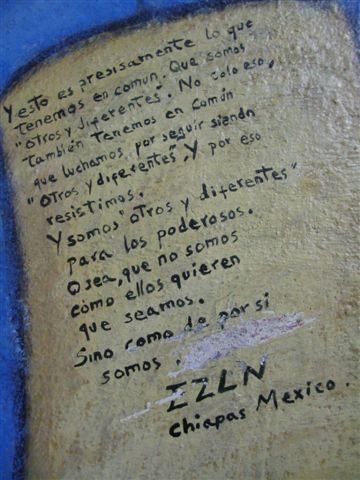 Y esto es presisamente lo que
tenemos en comun. Que somos
"otros y diferentes". No colo eso,
también tenemos en común
que luchamos por seguir siendo
"otros y diferentes", Y por eso
resistimos.
Y somos "otros y diferentes"
para los poderosos.
O sea, que no somos
como ellos quieren
que seamos.
Sino como de por si
somos.
EZLN
Chiapas Mexico.